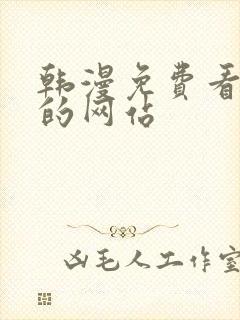 韩漫免费看
的网站
凶毛人工作室